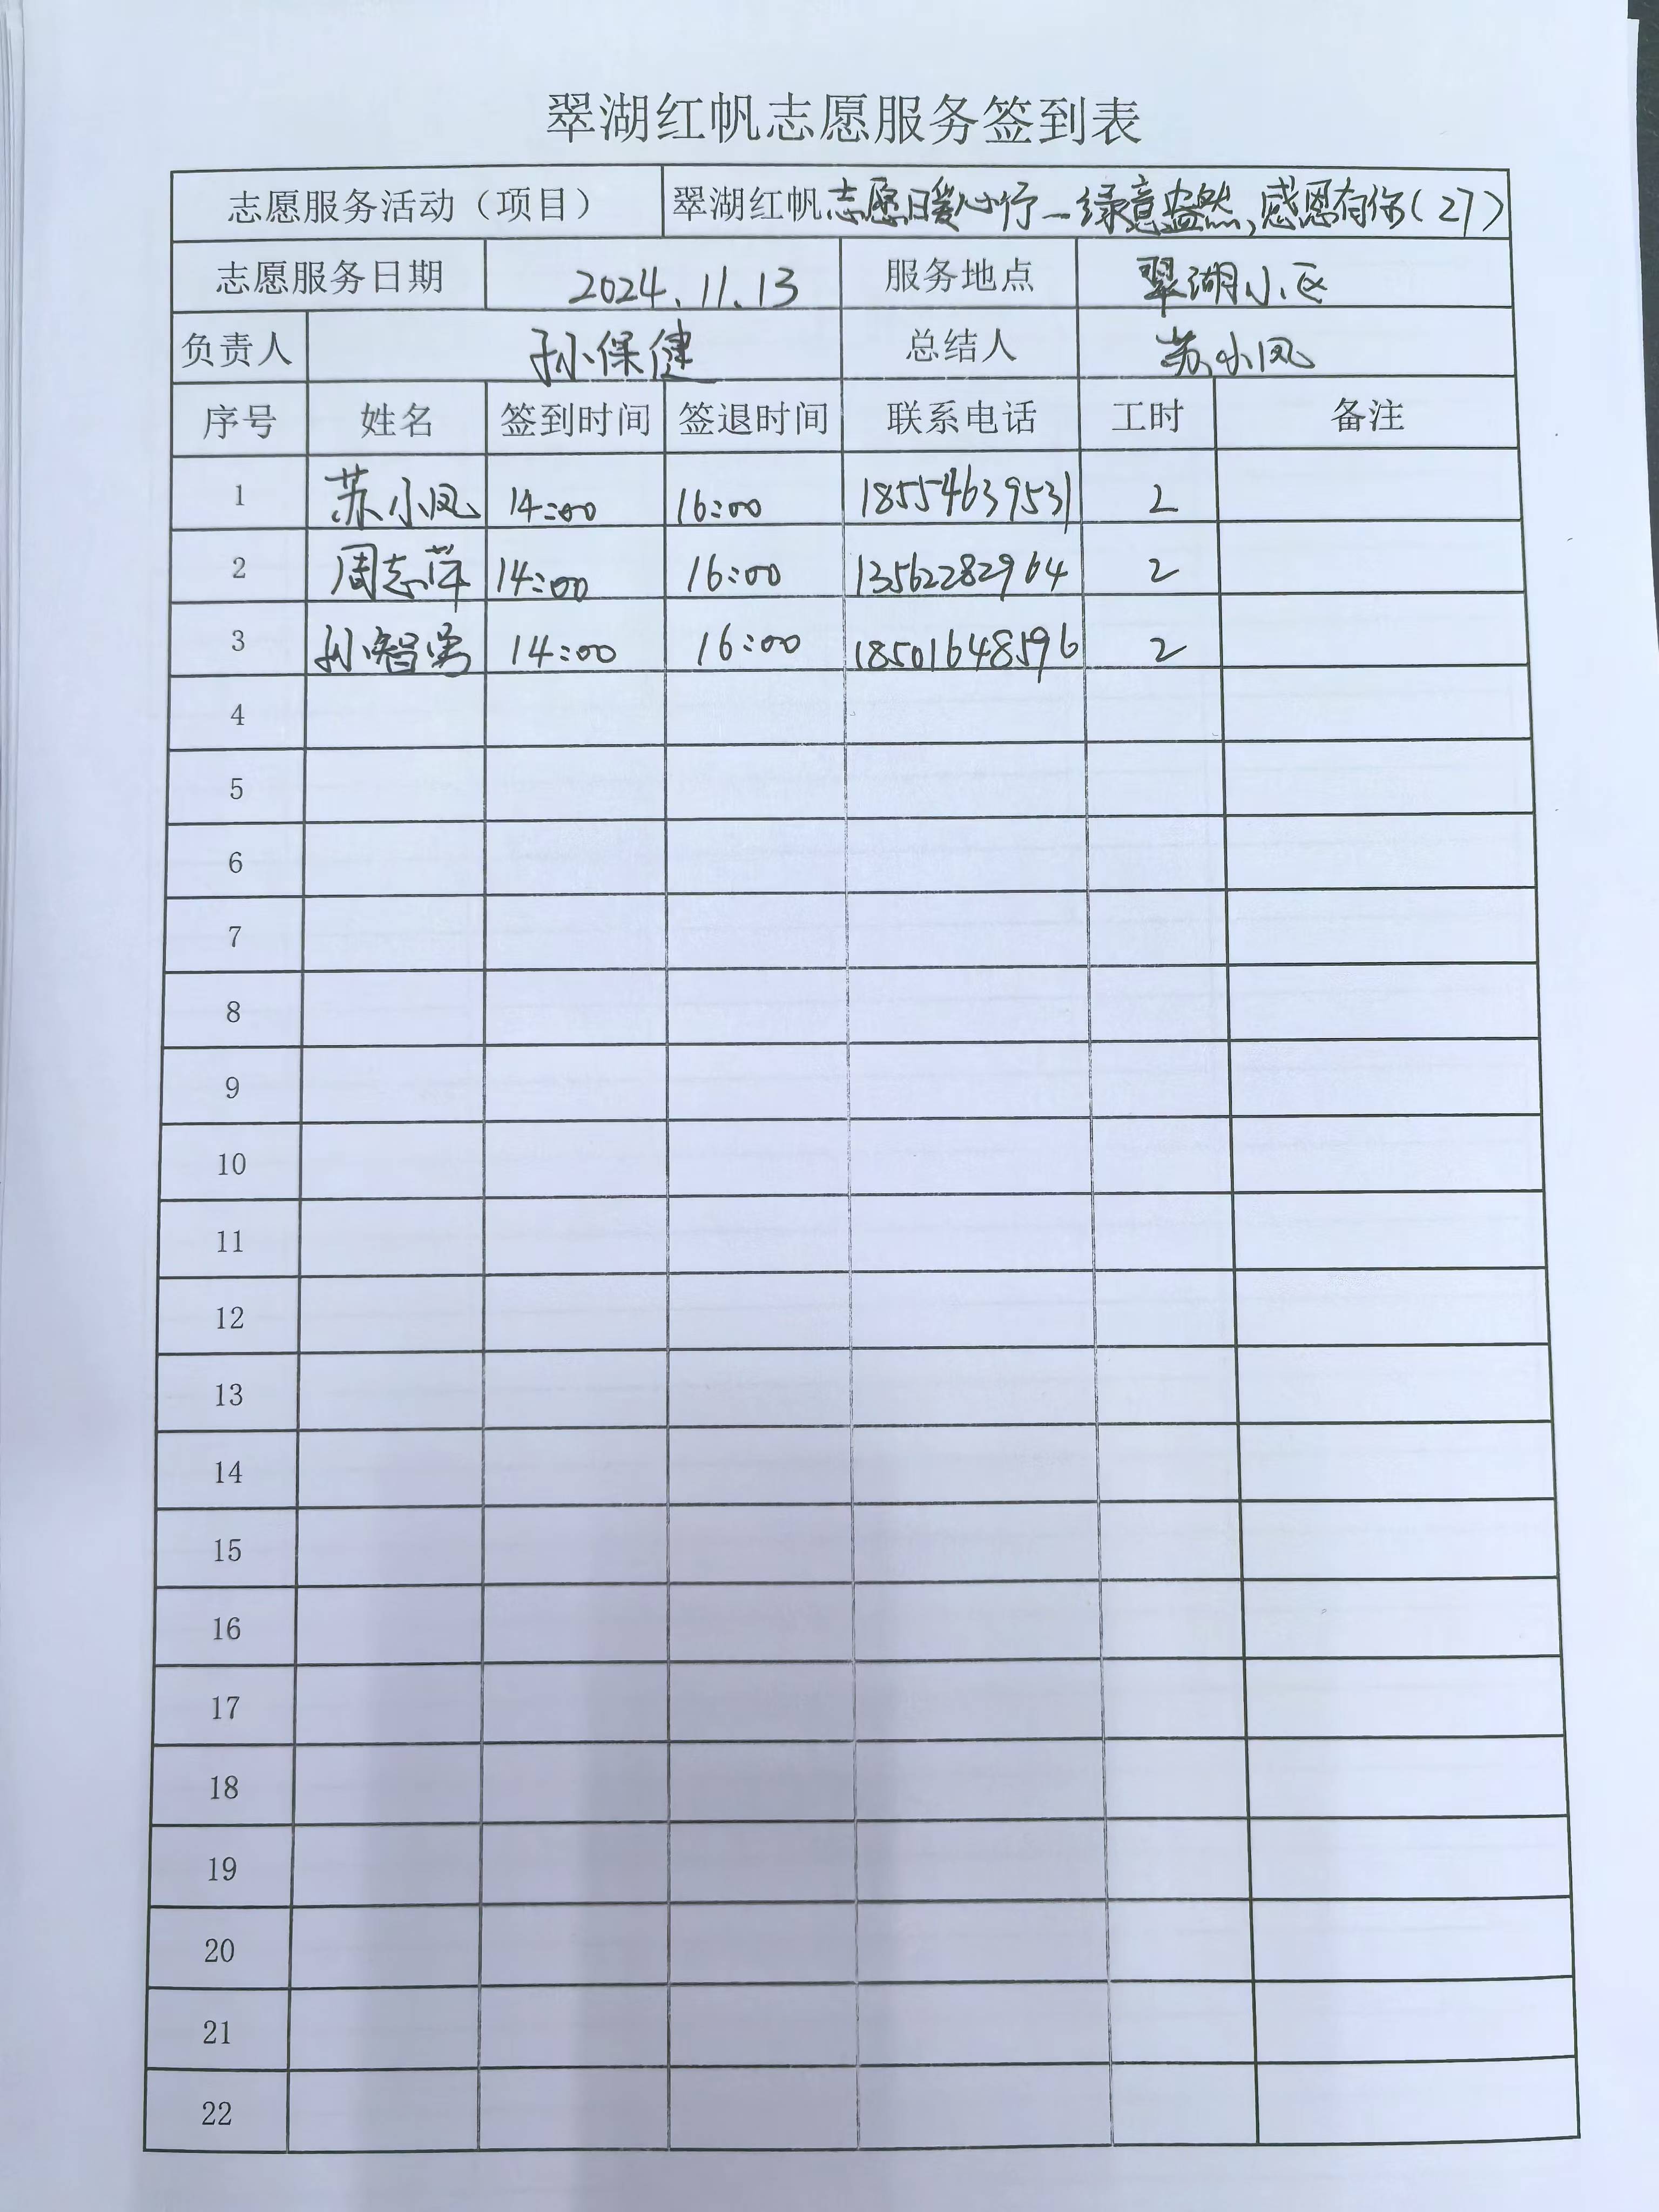 翠湖红帆志愿服务签到表
志愿服务活动（项目） 翠湖红帆志愿暖心行—绿意盎然,感恩有你(27)
志愿服务日期 2024.11.13 服务地点 翠湖小区
负责人 孙保健 总结人 苏小凤
序号 姓名 签到时间 签退时间 联系电话 工时 备注
1 苏小凤 14:00 16:00 18554639531 2
2 周志萍 14:00 16:00 13562282964 2
3 孙智勇 14:00 16:00 18501648596 2
4
5
6
7
8
9
10
11
12
13
14
15
16
17
18
19
20
21
22